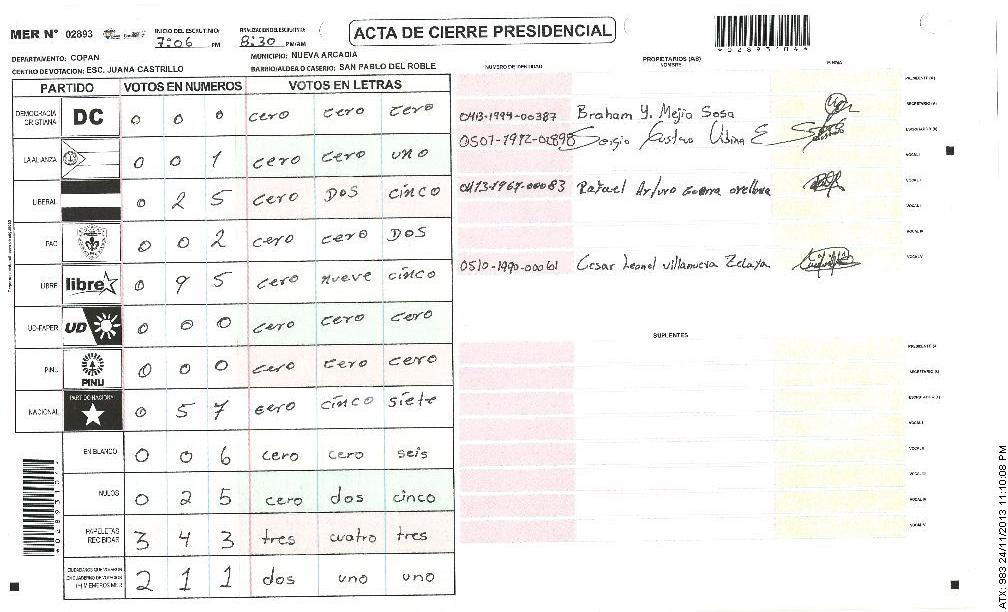 MER N° 02893
INICIO DEL ESCRUTINIO: 7:06 PM
FINALIZACION DEL ESCRUTINIO: 8:30 PM/AM
ACTA DE CIERRE PRESIDENCIAL
*02893104*
DEPARTAMENTO: COPAN
MUNICIPIO: NUEVA ARCADIA
CENTRO DE VOTACION: ESC. JUANA CASTRILLO
BARRIO/ALDEA O CASERIO: SAN PABLO DEL ROBLE
PARTIDO VOTOS EN NUMEROS VOTOS EN LETRAS
DEMOCRACIA CRISTIANA DC 0 0 0 cero cero cero
LA ALIANZA 0 0 1 cero cero uno
LIBERAL 0 2 5 cero DOS cinco
PAC 0 0 2 cero cero DOS
LIBRE libre 0 9 5 cero nueve cinco
UD-FAPER UD 0 0 0 cero cero cero
PINU PINU 0 0 0 cero cero cero
NACIONAL PARTIDO NACIONAL 0 5 7 cero cinco siete
EN BLANCO 0 0 6 cero cero seis
NULOS 0 2 5 cero dos cinco
PAPELETAS RECIBIDAS 3 4 3 tres cuatro tres
CIUDADANOS QUE VOTARON EN CUADERNO DE VOTACION (+) MIEMBROS MER 2 1 1 dos uno uno
NUMERO DE IDENTIDAD
PROPIETARIOS (AS)
NOMBRE
FIRMA
PRESIDENTE (A)
0413-1994-00387 Braham Y. Mejia Sosa SECRETARIO (A)
0501-1972-02898 Sergio Gustavo ESCRUTADOR (A)
VOCAL I
0413-1967-00083 Rafael Arturo Guerra orellana
VOCAL IV
0510-1990-00061 Cesar Leonel villanueva Zelaya VOCAL V
SUPLENTES
PRESIDENTE (A)
SECRETARIO (A)
ESCRUTADOR (A)
VOCAL I
VOCAL II
VOCAL III
VOCAL IV
VOCAL V
ATX: 983 24/11/2013 11:10:08 PM